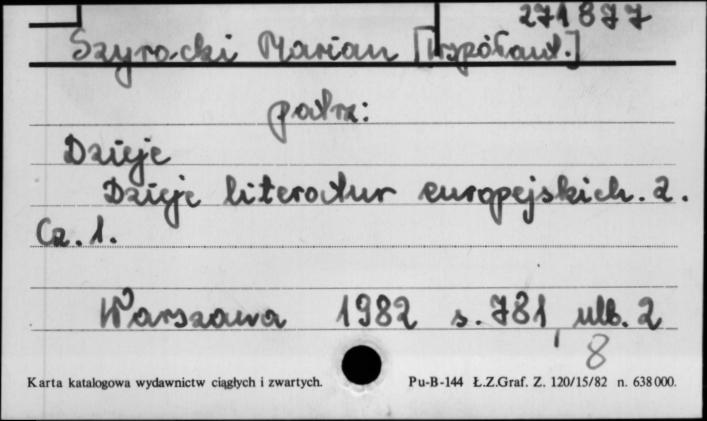 271877
Szyrocki Marian [Współaut.]
patrz:
Dzieje
Dzieje literatur europejskich. 2.
Cz. 1.
Warszawa 1982 s. 781, ulb. 2
8
Karta katalogowa wydawnictw ciągłych i zwartych. Pu-B-144 Ł.Z.Graf. Z. 120/15/82 n. 638000.